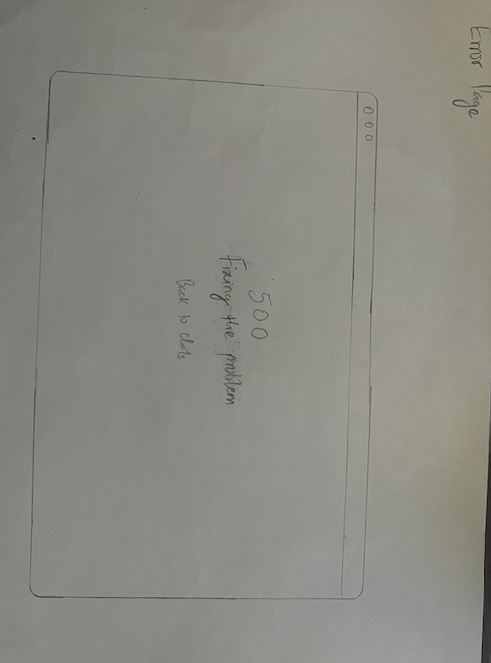 Error Page
500
Fixing the problem
Back to chats